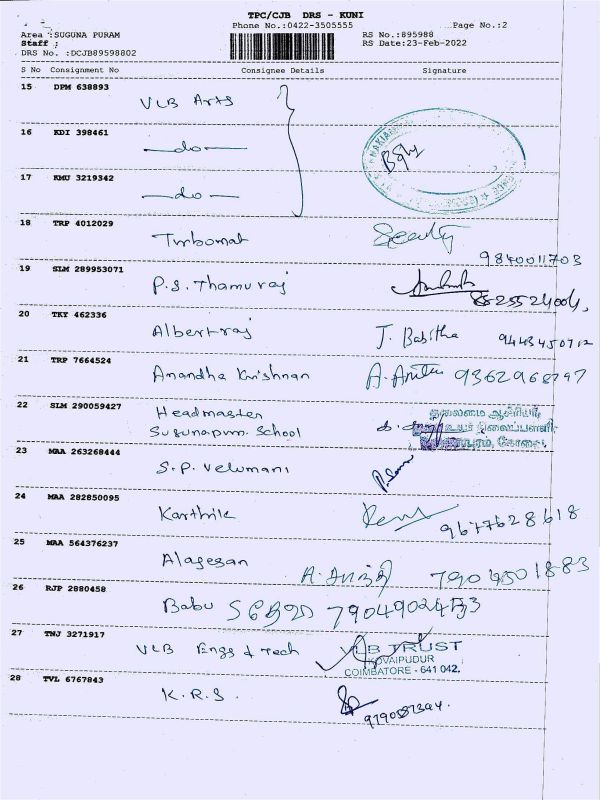 TPC/CJB DRS - KUNI
Phone No.:0422-3505555 Page No.:2
Area :SUGUNA PURAM RS No.:895988
Staff : RS Date:23-Feb-2022
DRS No. :DCJB89598802
S No Consignment No Consignee Details Signature
15 DPM 638893
VLB Arts
16 KDI 398461
do
17 KMU 3219342
do
18 TRP 4012029
Turbomat 9840011703
19 SLM 289953071
P.S. Thamuraj
20 TKY 462336
Albertraj J. Babitha 9443450712
21 TRP 7664524
Anandha Krishnan A. Anitu
22 SLM 290059427
Headmaster தலைமை ஆசிரியர்,
Sugunapurm. School
23 MAA 263268444
S.P. Velumani
24 MAA 282850095
Karthik 9677628618
25 MAA 564376237
Alagesan A. சாந்தி
26 RJP 2880458
Babu
27 TNJ 3271917
VLB Engg & Tech VLB TRUST
KOVAIPUDUR
COIMBATORE - 641 042.
28 TVL 6767843
K.R.S.